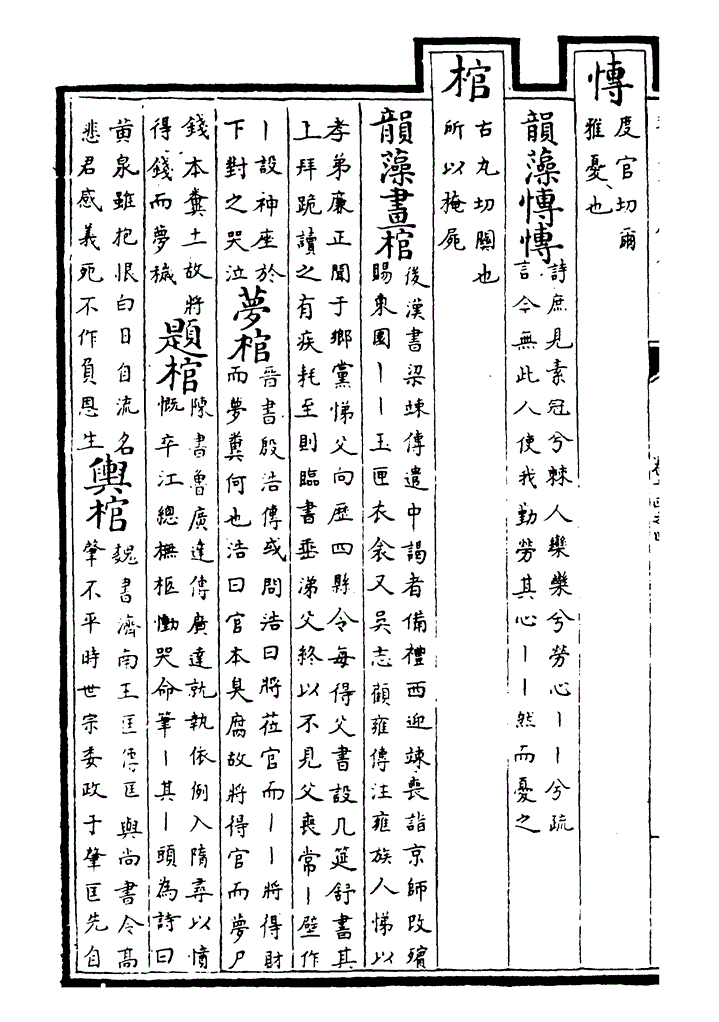 慱
度官切爾
雅憂也
韻藻慱慱
詩庶見素冠兮棘人欒欒兮勞心丨丨兮疏
言今無此人使我勤勞其心丨丨然而憂之
棺
古丸切關也
所以掩屍
韻藻畫棺
後漢書梁竦傳遣中謁者備禮西迎竦喪詣京師改殯
賜東園丨丨玉匣衣衾又吳志顧雍傳注雍族人悌以
孝弟廉正聞于鄉黨悌父向歷四縣令每得父書設几筵舒書其
上拜跪讀之有疾耗至則臨書垂涕父終以不見父喪常丨壁作
丨設神座於
下對之哭泣
夢棺
晉書殷浩傳或問浩曰將莅官而丨丨將得財
而夢糞何也浩曰官本臭腐故將得官而夢尸
錢本糞土故將
得錢而夢穢
題棺
陳書魯廣達傳廣達就執依例入隋尋以憤
慨卒江總撫柩慟哭命筆丨其丨頭為詩曰
黄泉雖抱恨白日自流名
悲君感義死不作負恩生
輿棺
魏書濟南王匡傳匡與尚書令高
肇不平時世宗委政于肇匡先自